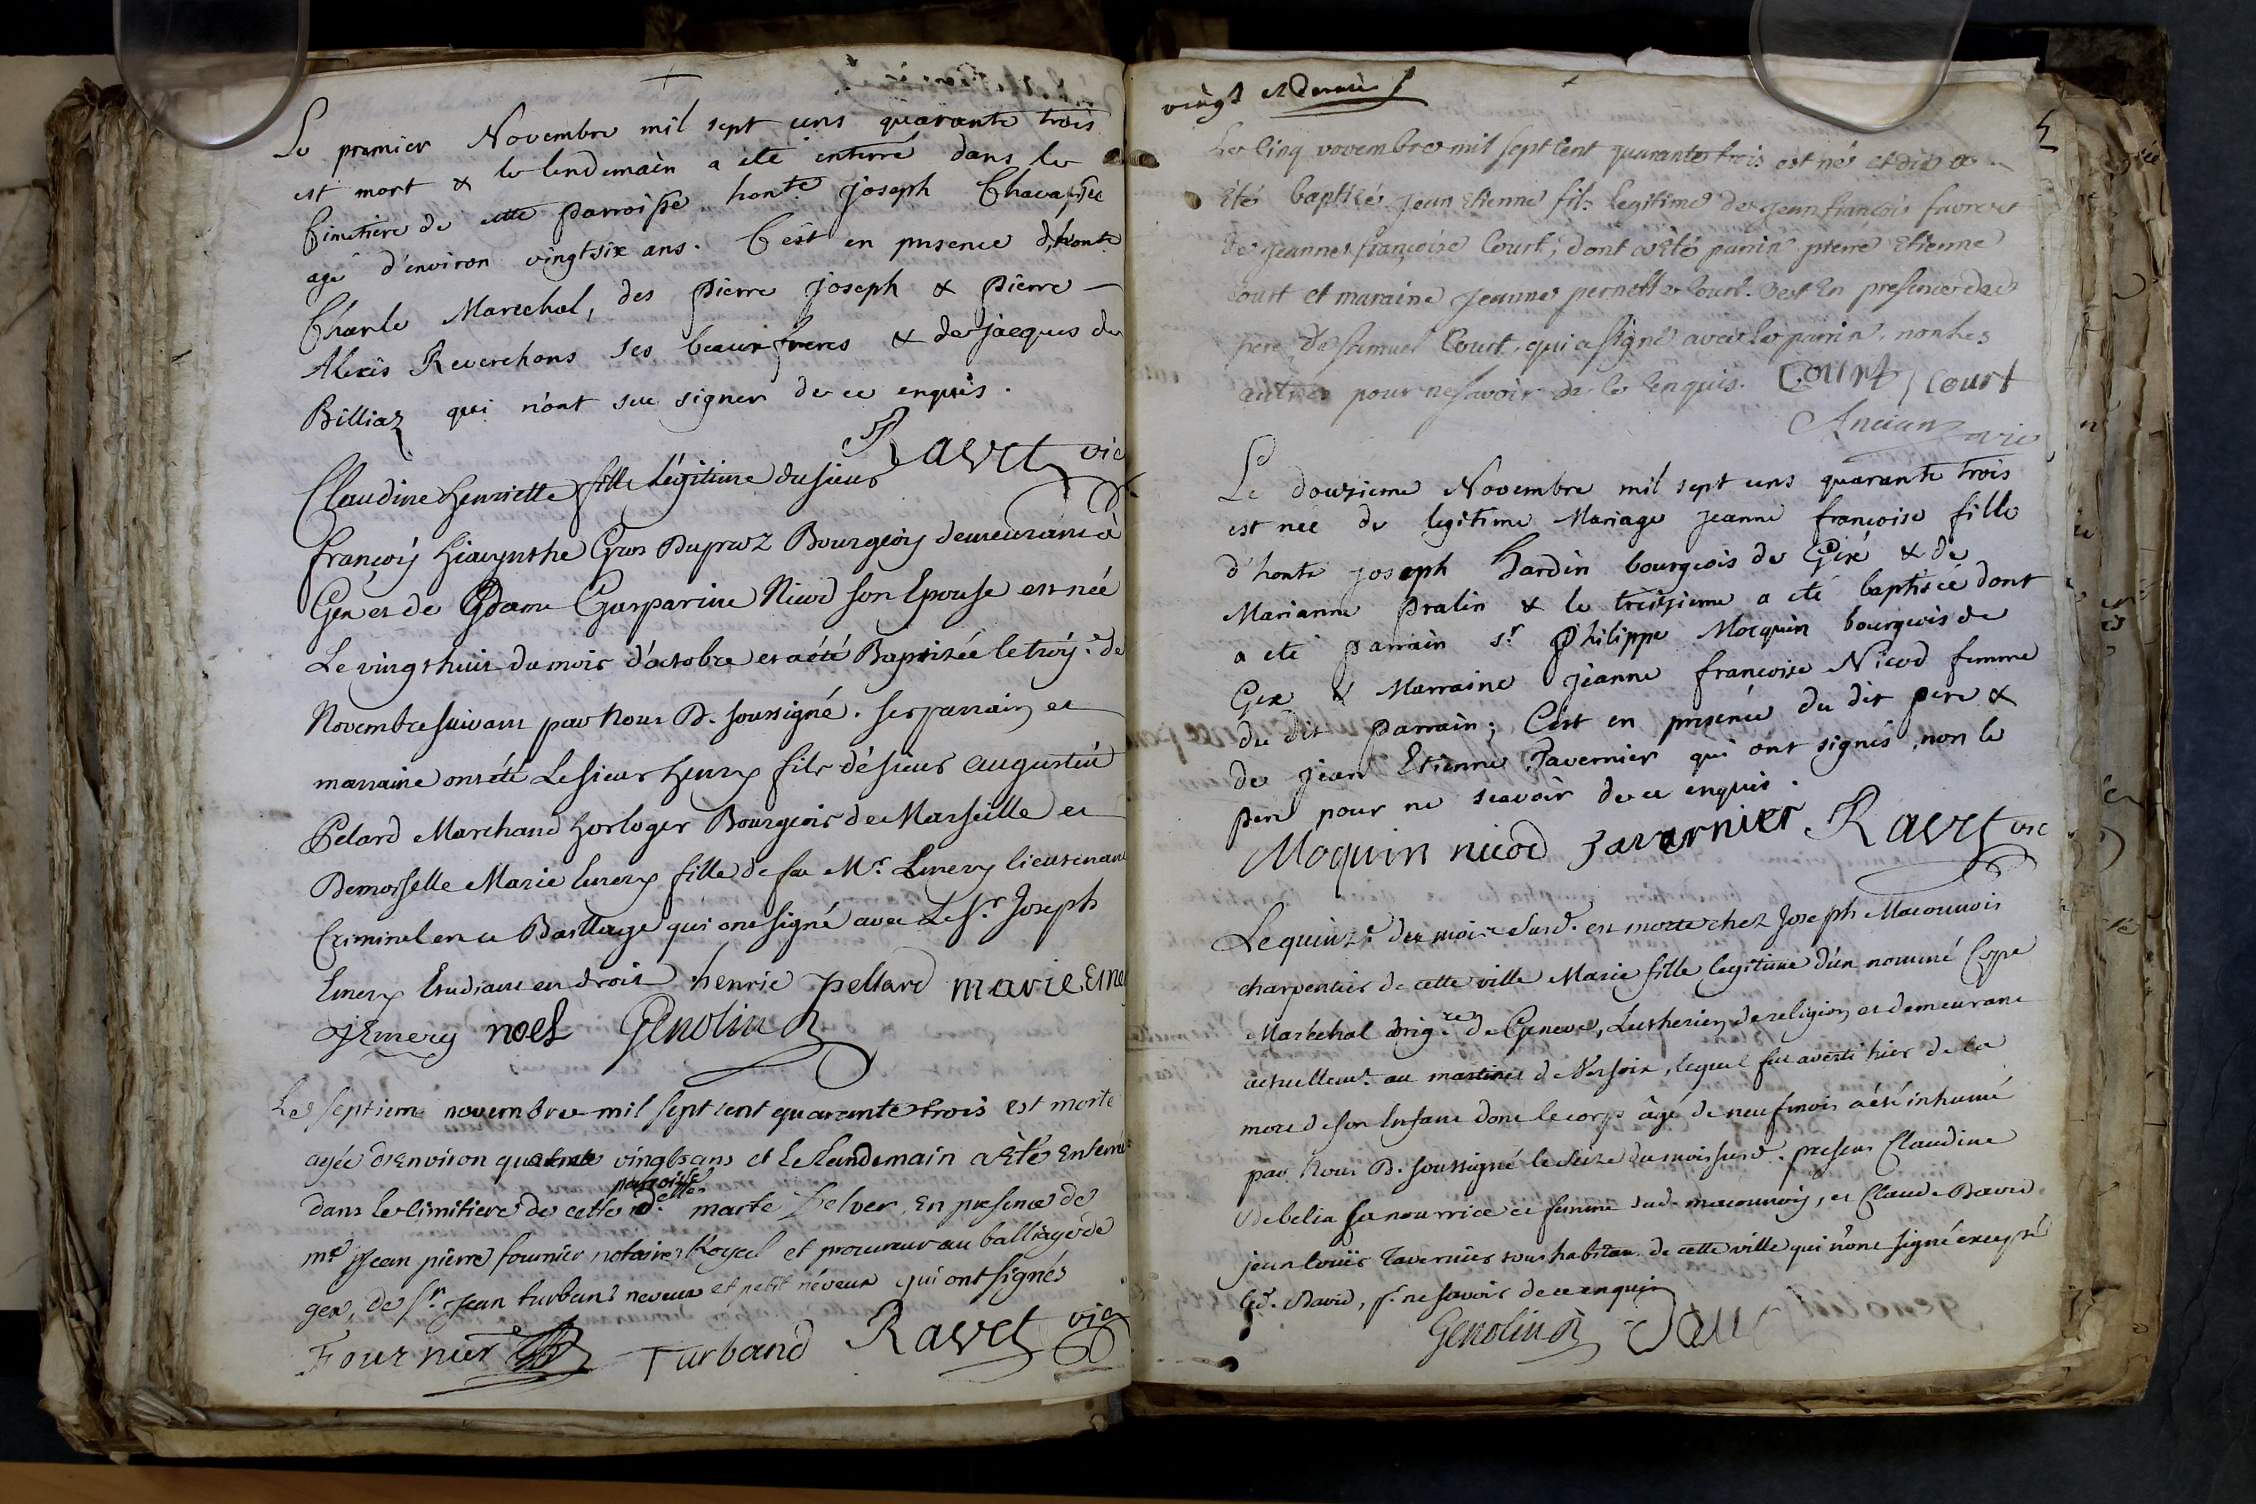 Le premier Novembre mil sept cens quarante trois
est mort & le lendemain a été enterré dans le
Cimetiere de cette parroisse honte. joseph
agé d'environ vingtsix ans. C'est en presence d'honte
Charle Marechal, des pierre joseph & pierre
Alexis Reverchons ses beaux freres & de jacques du
Billiaz qui n'ont sue signer de ce enquis.
Ravet vic
Claudine henriette fille légitime du sieur
françois hiacynthe Gros Dupraz Bourgeois demeurant à
Gex et de Dame Gasparine Nicod son Epouse est née
Le vingt huit du mois d'octobre et a été Baptisée le troise. de
Novembre suivant par Nous P. soussigné. ses parrain et
marraine ont été Le sieur henry fils de sieur augustin
Pelard Marchand horloger Bourgeois de Marseille et
Demoiselle Marie Emery fille de feu Mr. Emery lieutenant
Criminel en ce Bailliage qui ont signé avec Le Sr. Joseph
Emery Etudiant en droit henric pellard marie Eme
J Emery noel Genolin
Le septieme novembre mil sept cent quarante trois est morte
agée d'Environ quatre vingts ans et le Lendemain a Eté Enterrée
dans le Cimitiere de cette paroisse delle. marte Delver, En presence de
me. jean pierre fournier notaire Royal et procureur au balliage de
gex, de sr. jean turband neveux et petit néveux qui ont signés
Fournier Turband Ravet vic
vingt et dernier
5
Le Cinq novembre mil sept Cent quarante trois est né et dix a
Eté baptisé jean Etienne fils legitime de jean françois favre et
de jeanne françoise Court; dont a Eté parin pierre Etienne
Court et maraine jeanne pernette Court. C'est En presence du
pere, de samuel Court, qui a signé avec le parrin, non les
autres pour ne savoir de ce Enquis. Court Court
Ancian vic
Le douzieme Novembre mil sept cens quarante trois
est neé de legitime Mariage jeanne françoise fille
d'honte joseph hardin bourgeois de Gex & de
Marianne pralin & le treizieme a été baptisée dont
a été parrain sr. philippe Moquin bourgeois de
Gex & Marraine jeanne françoise Nicod femme
du dit parrain; C'est en presence du dit pere &
de jean Etienne Tavernier qui ont signés, non le
pere pour ne scavoir de ce enquis.
Moquin nicod Tavernier Ravet vic
Le quinze. du mois susd. est morte chez Joseph Maconnois
charpentier de cette ville Marie fille legitime d'un nommé
Marechal de Geneve, Lutherien de religion et demeurant
actuellemt. au martinet de Versoix, lequel fut averti hier de la
mort de son Enfant dont le corps âgé de neuf mois a été inhumé
par Nous P. soussigné le seize du mois susd. presens Claudine
Debelia sa nourrice et femme dud. maconnois, et Claude David
jean louis Tavernier tous habitans de cette ville qui n'ont signé excepté
led. David, pr. ne savoir de ce enquis
Genolin David